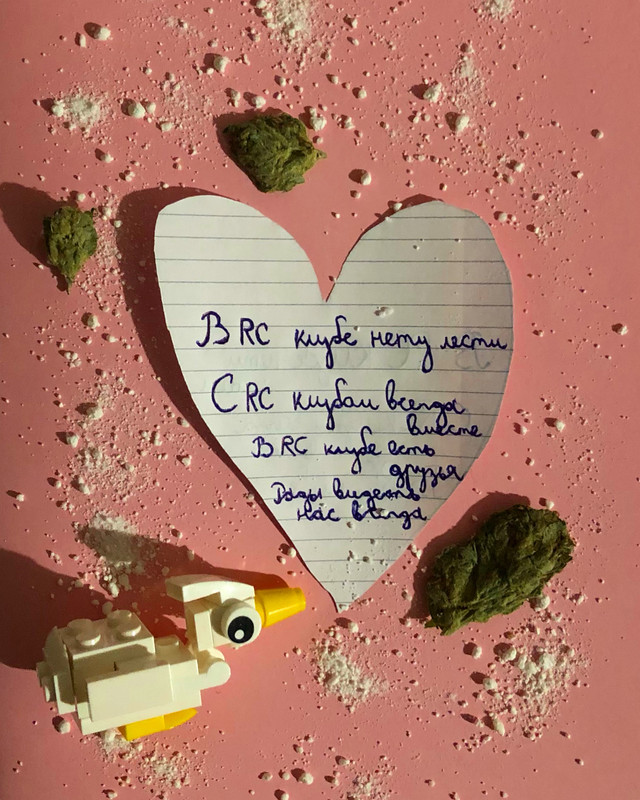 В RC клубе нету лести
С RC клубом всегда
вместе
В RC клубе есть
друзья
Рады видеть
нас всегда